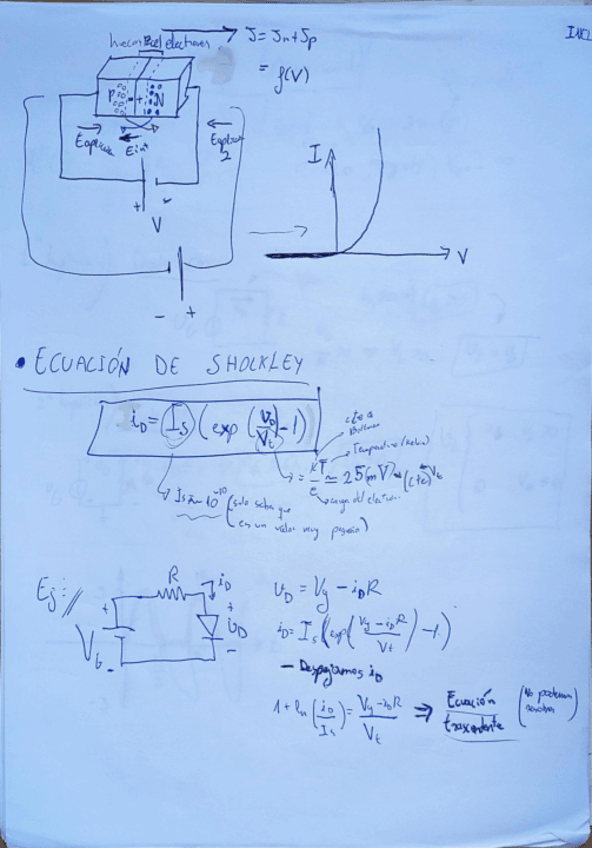 huecos electrones J = Jn + Jp
= f(V)
P - + N
Eaplicado Eint Eaplicado 2
+ -
V
- +
I
V
• ECUACIÓN DE SHOCKLEY
iD = Is (exp (VD/Vt) - 1)
cte de Boltzman
Temperatura (Kelvin)
= KT/e ≃ 25 (mV) (cte)
carga del electron
Is ≈ 10^-10 (solo saber que
es un valor muy pequeño)
Ej:
R iD
+ +
VG UD
- -
UD = Vg - iDR
iD = Is (exp (Vg - iDR / Vt) - 1)
- Despejamos iD
1 + ln (iD/Is) = Vg - iDR / Vt ⇒ Ecuación trascendente (No podemos resolver)